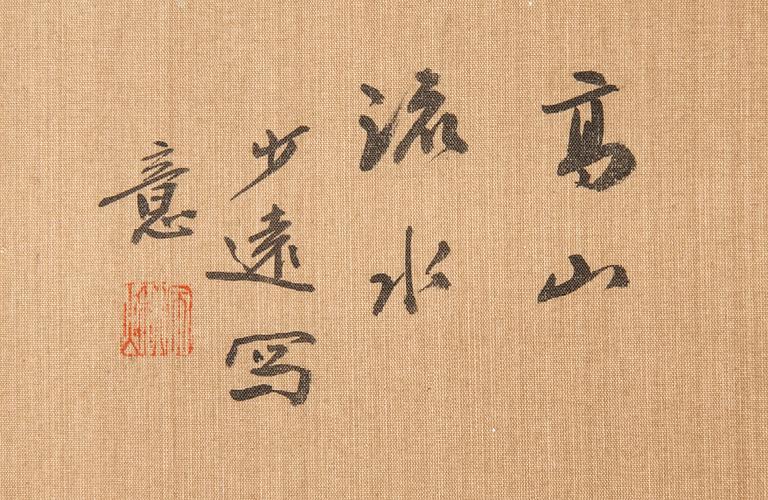 高山
流水
少遠寫
意